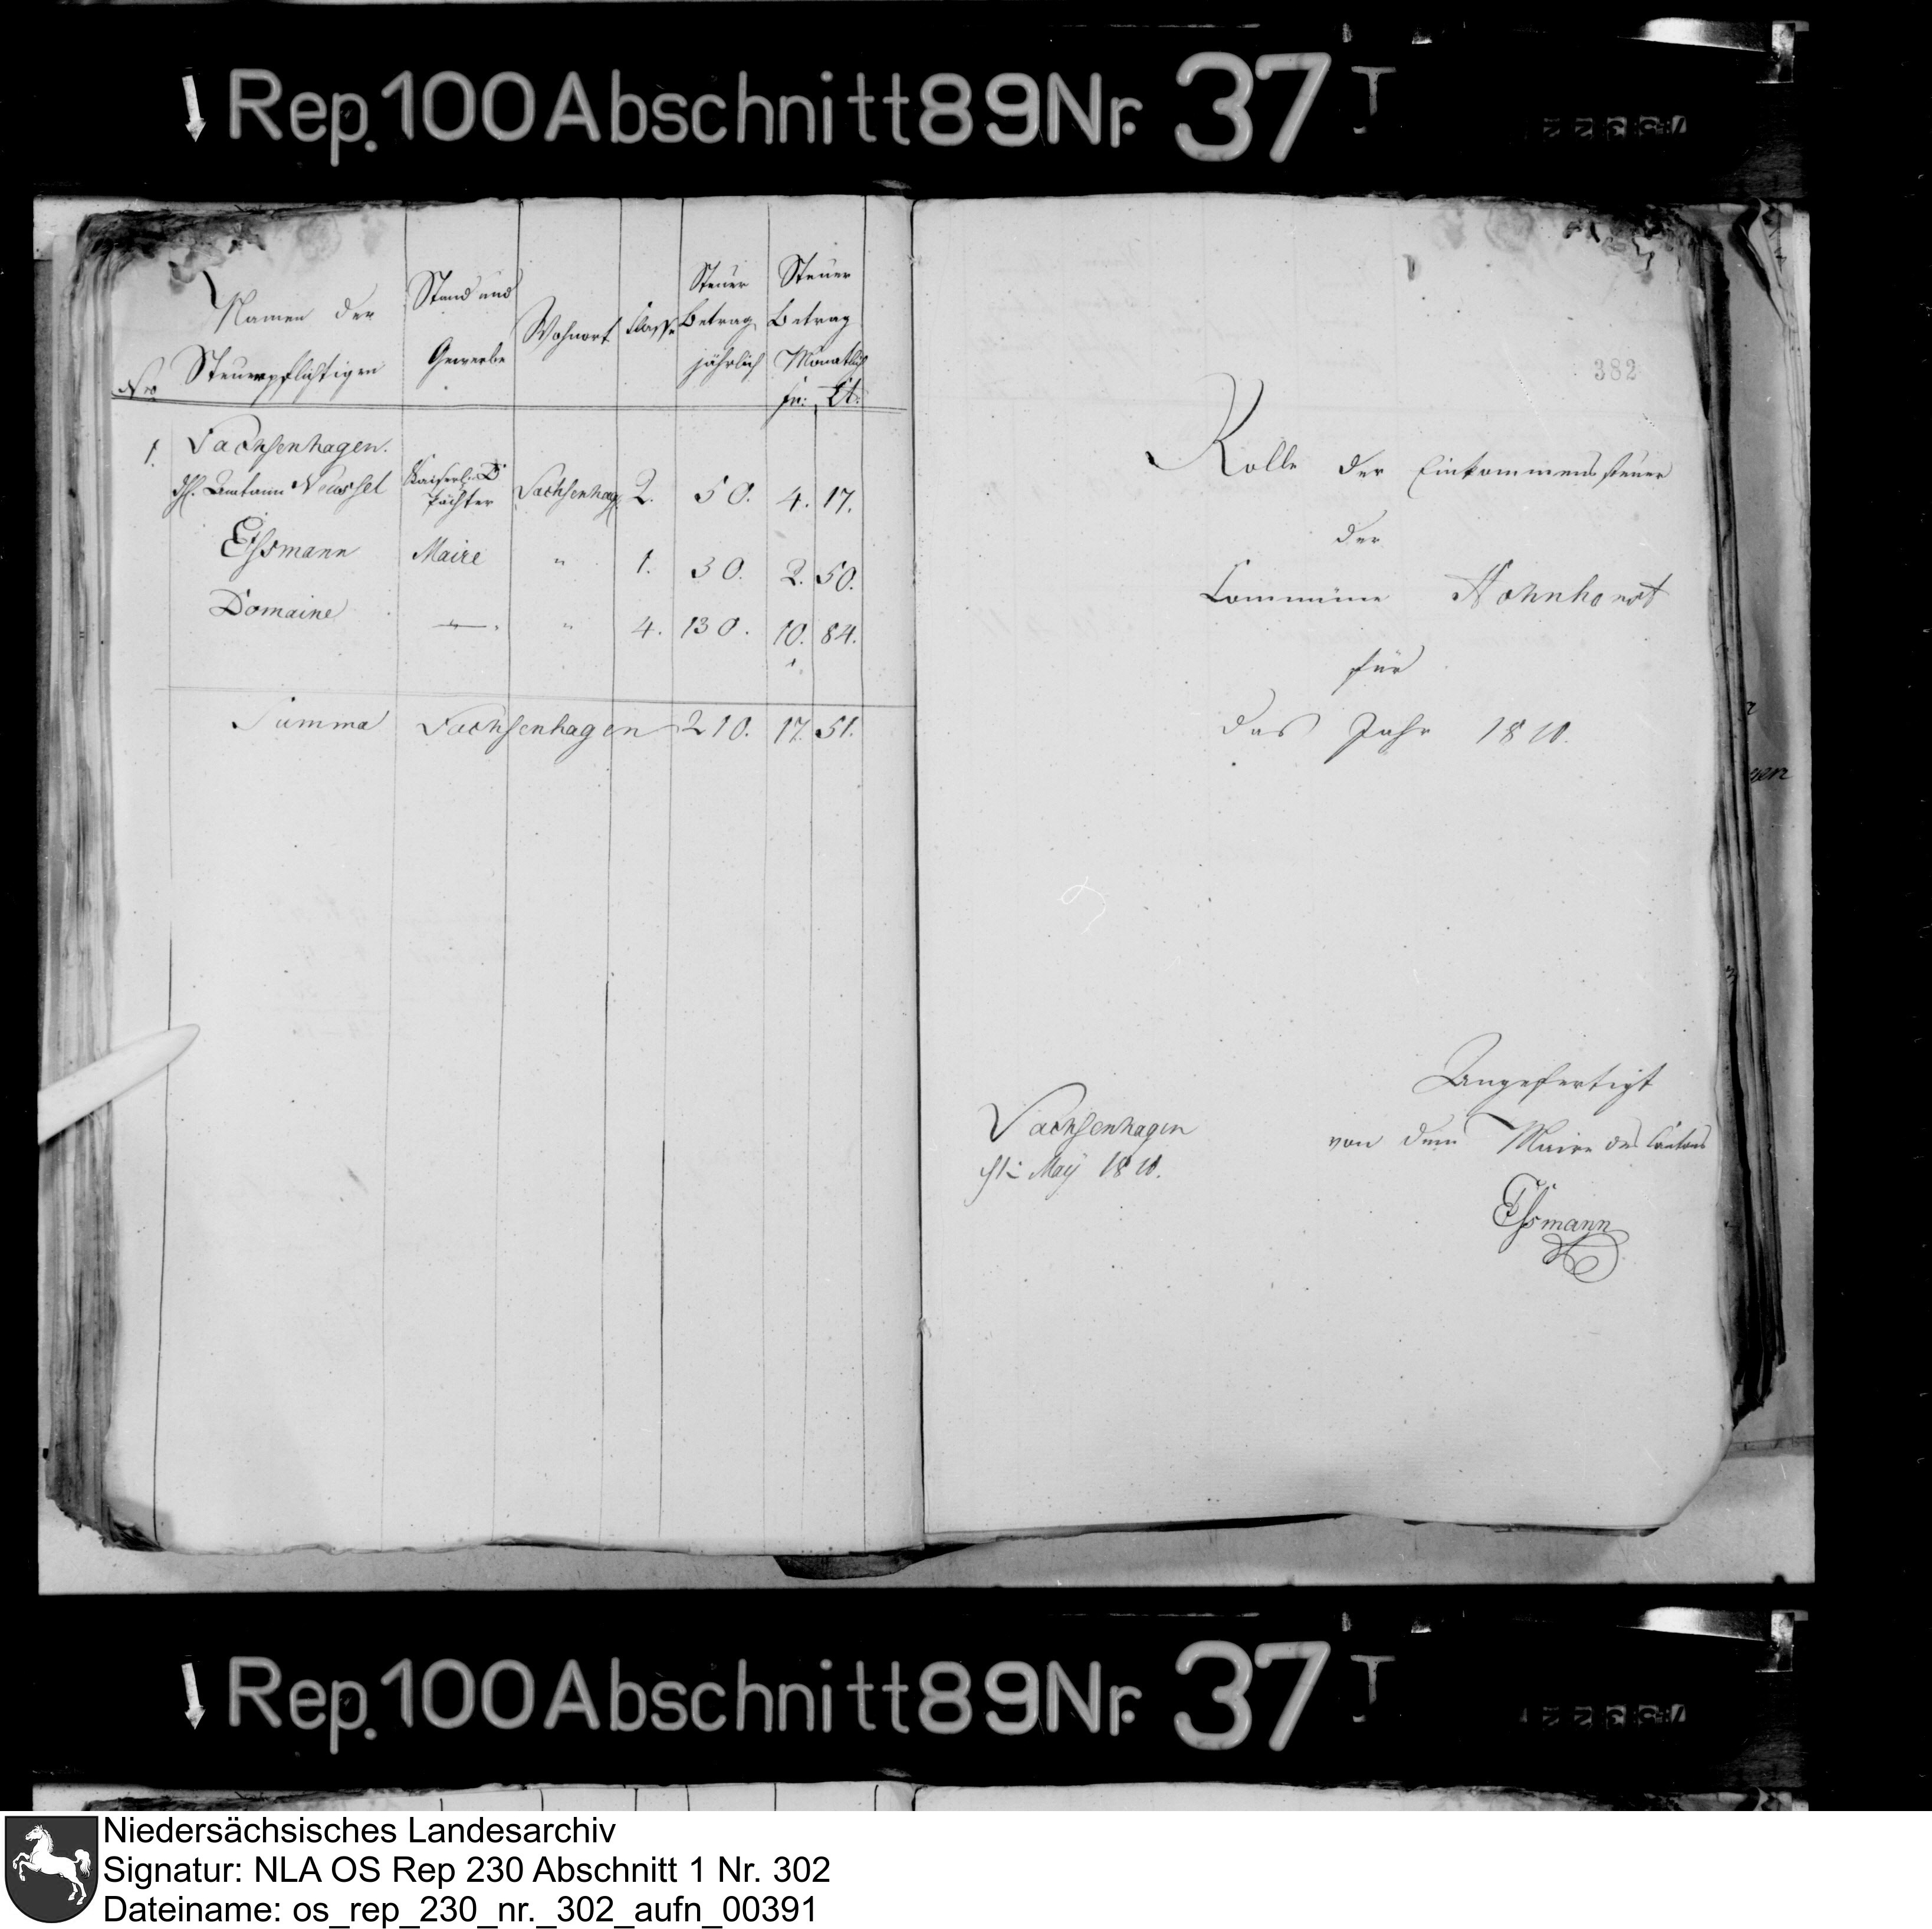 Rep. 100 Abschnitt 89 Nr. 37 I
Nro
Namen der
Steuerpflichtigen
Stand und
Gewerbe
Wohnort
Classe
Steuer
Betrag
jährlich
Steuer
Betrag
Monatlich
fr: Ct:
1. Sachsenhagen.
Amtmann Kaiserl. D
Pächter Sachsenhag. 2. 50. 4. 17.
Eissmann Maire " 1. 30. 2. 50.
Domaine " " 4. 130. 10. 84.
Summa Sachsenhagen 210. 17. 51.
382
Rolle der Einkommenssteuer
der
Commüne Nohnhorst
für
das Jahr 1810.
Angefertigt
von dem Maire des Cantons
Eissmann
Sachsenhagen
May 1810.
Rep. 100 Abschnitt 89 Nr. 37 I
Niedersächsisches Landesarchiv
Signatur: NLA OS Rep 230 Abschnitt 1 Nr. 302
Dateiname: os_rep_230_nr._302_aufn_00391